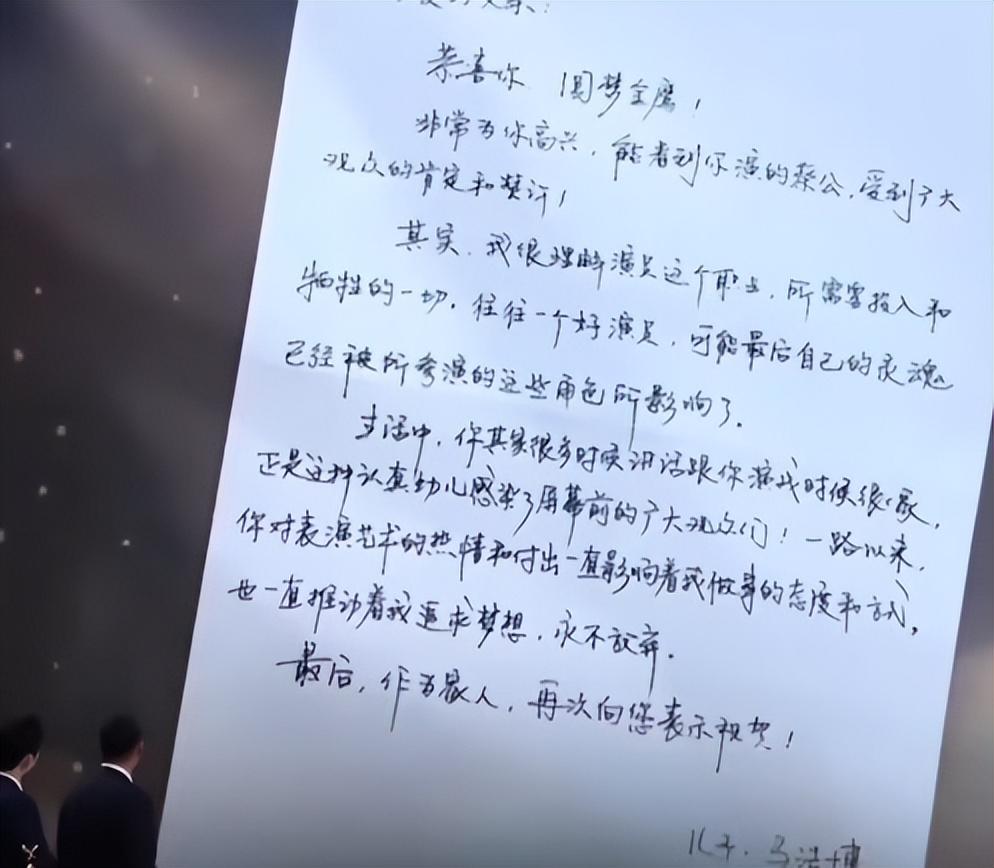 恭喜你 圆梦金鹰!
非常为你高兴,能看到你演的蔡公,受到广大
观众的肯定和赞许!
其实,我很理解演员这个职业,所需要投入和
牺牲的一切。往往一个好演员,可能最后自己的灵魂
已经被所参演的这些角色所影响了。
生活中,你其实很多时候讲话跟你演戏时候很像,
正是这种认真劲儿感染了屏幕前的广大观众们!一路以来,
你对表演艺术的热情和付出一直影响着我做事的态度和方式,
也一直推动着我追求梦想,永不放弃。
最后,作为家人,再次向您表示祝贺!
儿子:马浩